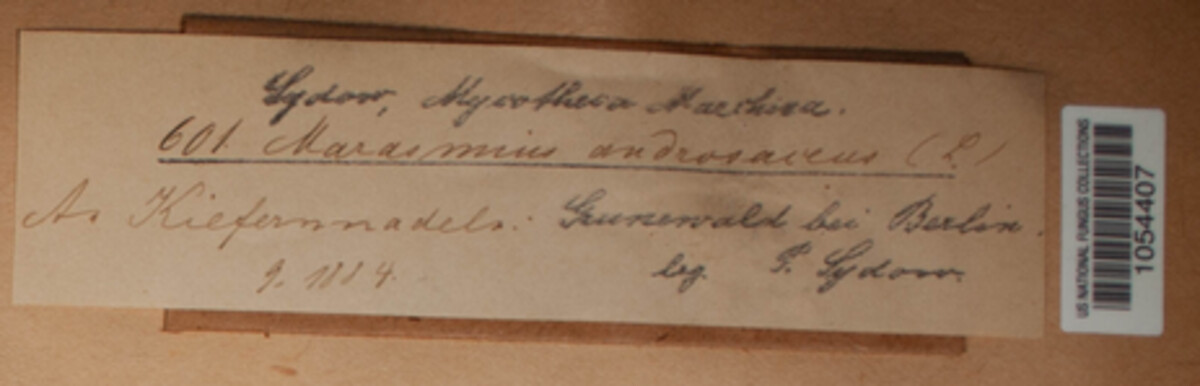 Sydow, Mycotheca Marchica.
601. Marasmius androsaceus (L.)
An Kiefernnadeln. Grunewald bei Berlin.
9. 1884. leg. P. Sydow.
US NATIONAL FUNGUS COLLECTIONS
1054407